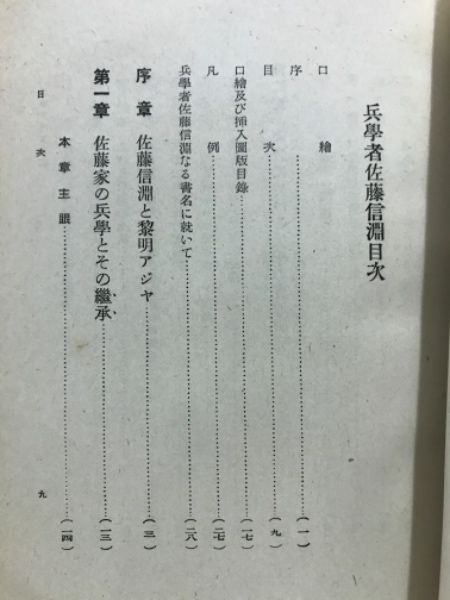 兵學者佐藤信淵目次
口繪
序……(一)
目次……(九)
口繪及び挿入圖版目錄……(一七)
凡例……(二七)
兵學者佐藤信淵なる書名に就いて……(二八)
序章 佐藤信淵と黎明アジヤ……(三)
第一章 佐藤家の兵學とその繼承……(一三)
本章主眼……(一四)
目次
九